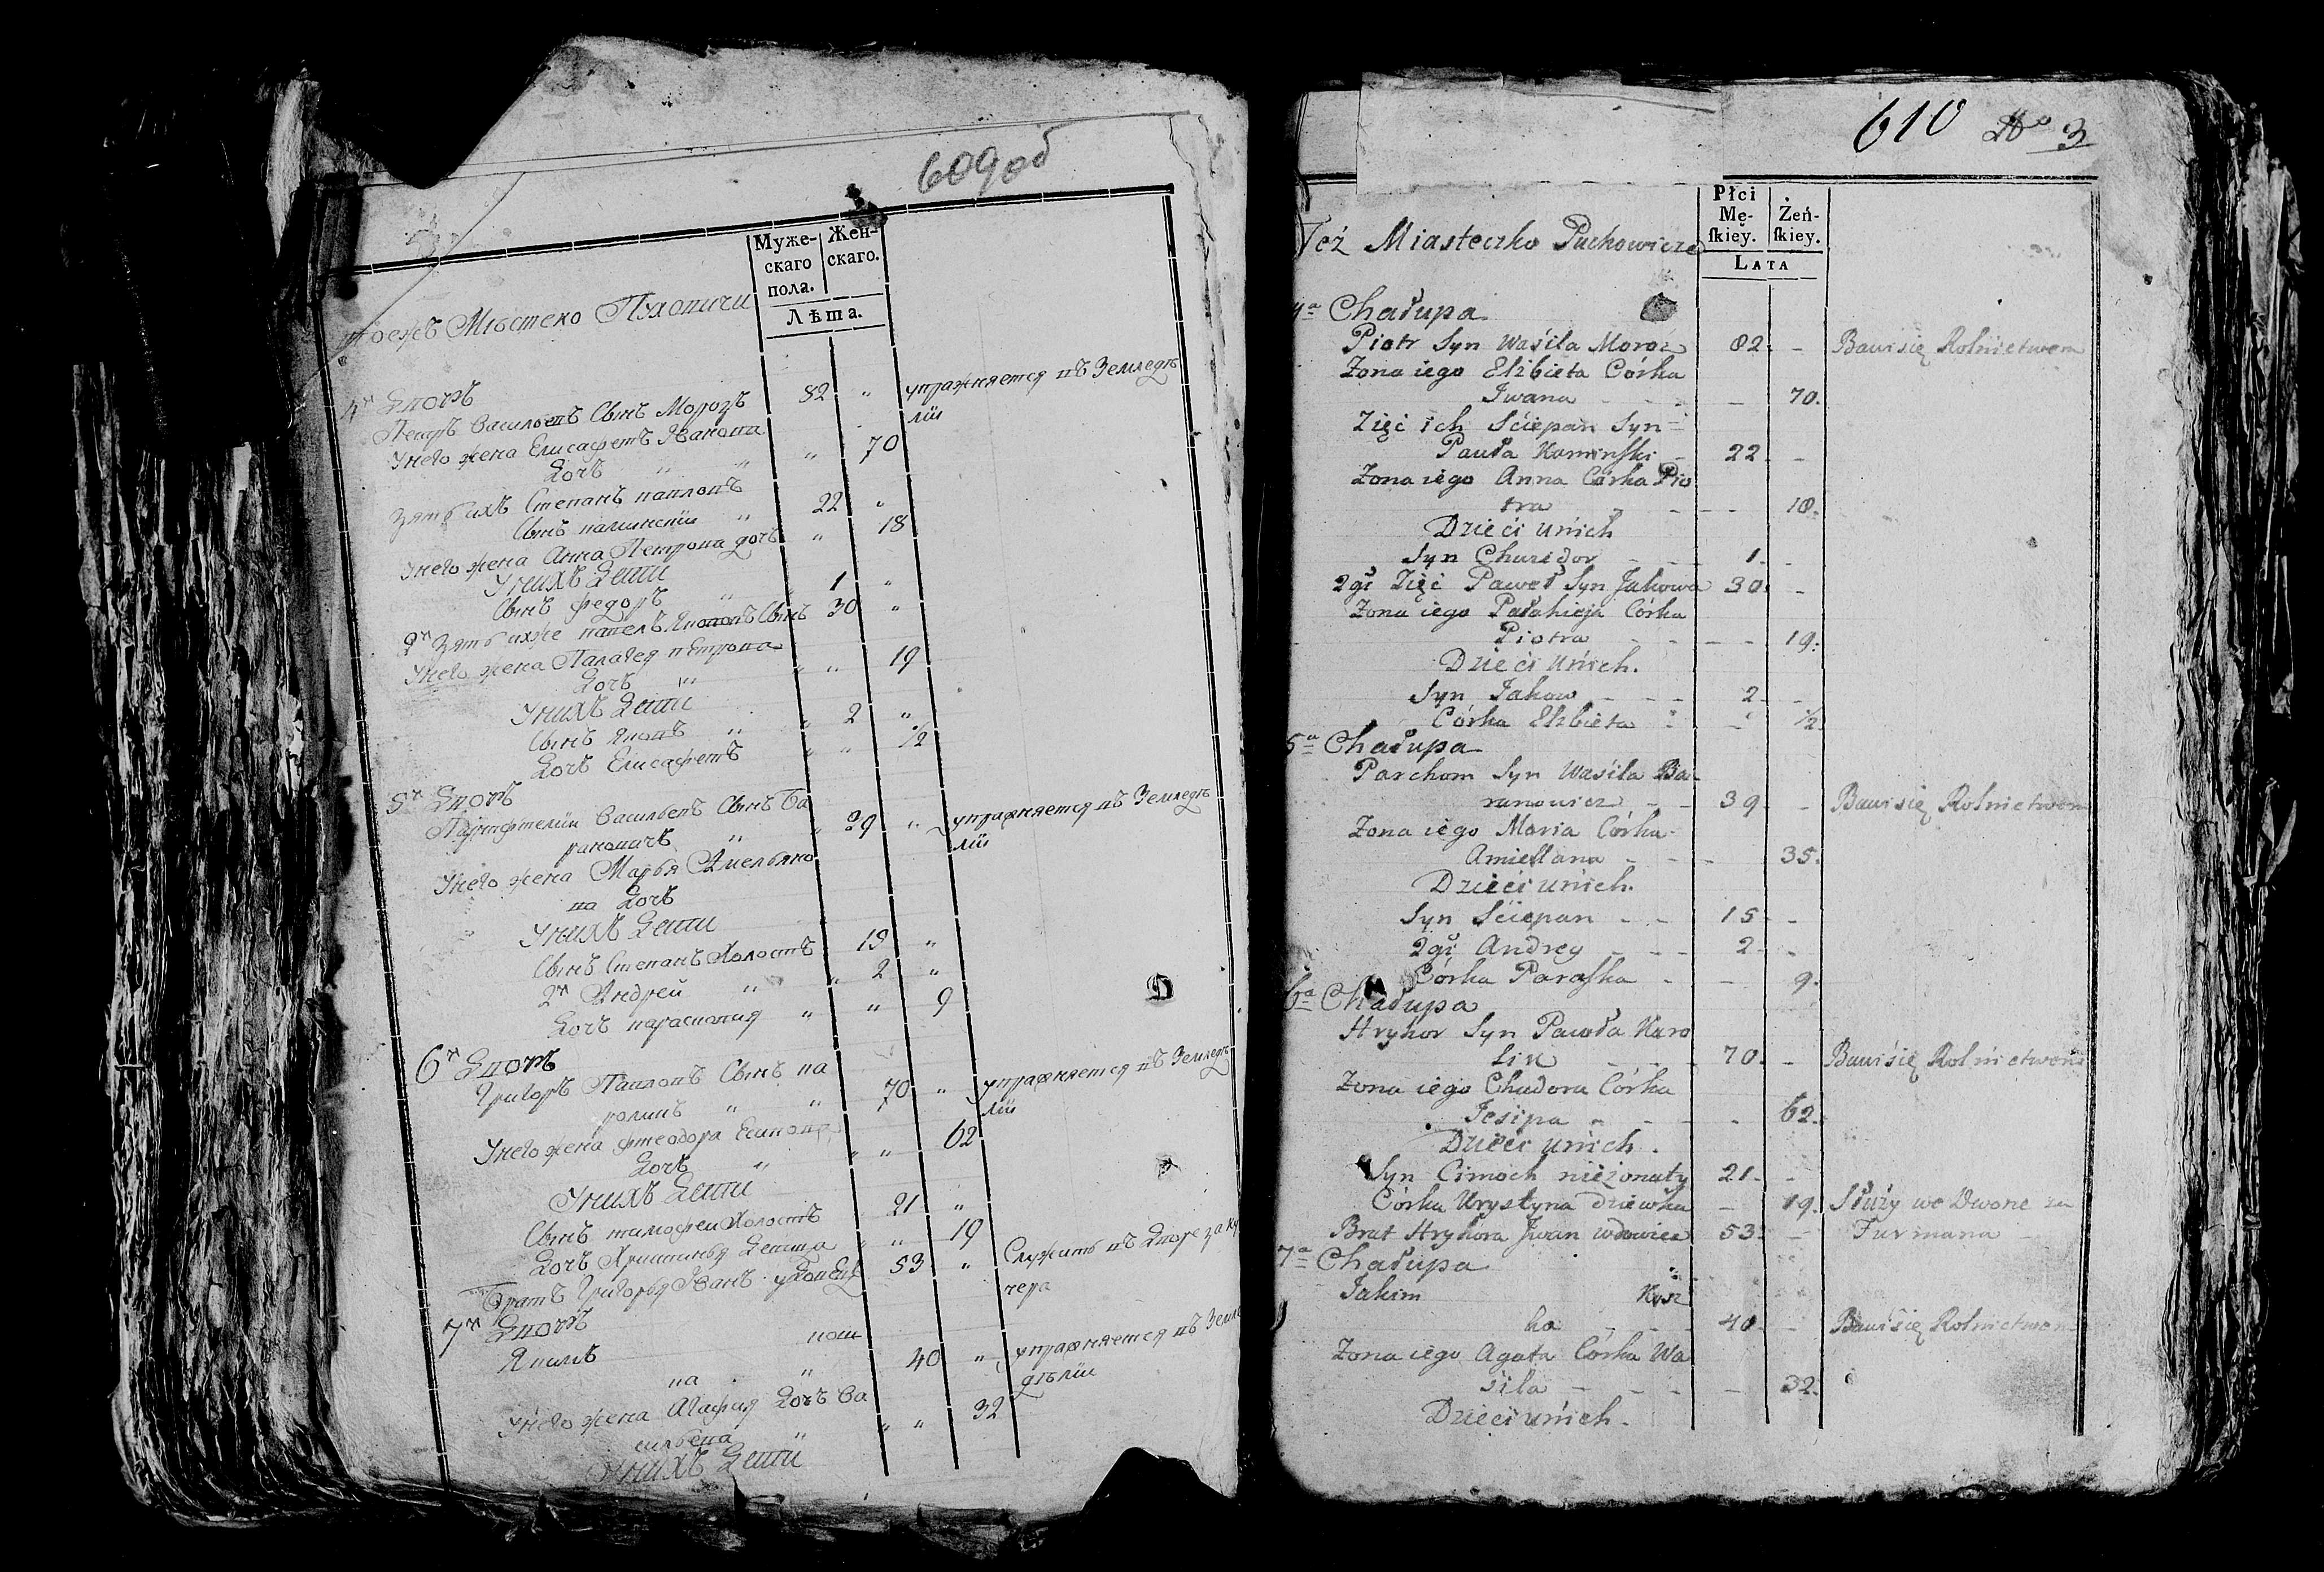 609 об
Муже-
скаго
пола.
Жен-
скаго.
Лѣта.
тоежъ Мѣстеко Пуховичи
4й Дворъ
Петръ Васильевъ Сынъ Морозъ 82 " упражняется въ Земледѣ
лiи
Унего жена Елисафетъ Иванова
Дочь " " " 70
Зять ихъ Степанъ павловъ
Сынъ каминскiи " 22 "
Унего жена Анна Петрова дочь " 18
Унихъ Дети
Сынъ федоръ " 1 "
2й Зять ихже павелъ Яковов Сынъ 30 "
Унего жена Палагея петрова
Дочь " " " 19
Унихъ Дети
Сынъ Яковъ " " 2 "
Дочь Елисафетъ " " 1/2
5й Дворъ
Васильевъ Сынъ Ба
рановичъ " " 39 " упражняется въ Земледѣ
лiи
Унего жена Марья Амельяно
ва Дочь
Унихъ Дети
Сынъ Степанъ Холостъ 15 "
2й Андрей " " 2 "
Дочь парасковия " " 9
6й Дворъ
Григоръ Павловъ Сынъ ка
ролик " " 70 " упражняется въ Земледѣ
лiи
Унего жена фтеодора Есипова
Дочь " " " 62
Унихъ Дети
Сынъ тимофеи Холостъ 21 "
Дочь Християнья Девица " " 19
Братъ Григорья Иванъ удовецъ 53 " Служитъ въ Дворе за ку
чера
7й Дворъ
Якимъ кош
ка " 40 " упражняется въ Земле
дѣлiи
Унего жена Агафия Дочь Ва
сильева " " " 32
Унихъ Дети
610 No 3
Płci
Mę-
ſkiey.
Żeń-
ſkiey.
LATA
Też Miasteczko Puchowicze
4a Chałupa
Piotr Syn Wasila Moroz 82. - Bawi się Rolnictwem
Żona iego Elżbieta Córka
Jwana - - - - 70.
Zięć ich Ściepan Syn
Pawła Kaminſki - 22. -
Żona iego Anna Córka Pio
tra - - - - 18.
Dzieci unich
Syn Chwiedor - - 1. -
2gi Zięć Paweł Syn Jakowa 30. -
Żona iego Pałahieja Córka
Piotra - - - - 19.
Dzieci unich.
Syn Jakow - - - 2. -
Córka Elżbieta - - 1/2.
5a Chałupa
Parchom Syn Wasila Ba-
ranowicz - - 39. - Bawi się Rolnictwem
Żona iego Maria Córka
Amiellana - - - 35.
Dzieci unich.
Syn Ściepan - - 15. -
2gi Andrey - - - 2. -
Córka Paraſka - - 9.
6a Chałupa
Hryhor Syn Pawła Karo
lik - - - 70. - Bawi się Rolnictwem
Żona iego Chadora Córka
Jesipa - - - - 62.
Dzieci unich.
Syn Cimoch nieżonaty 21. -
Córka Krystyna dziewka - 19. Służy we Dworze za
Brat Hryhora Jwan wdowiec 53. - Furmana
7a Chałupa
Jakim Kosz
ka - - - 40. - Bawi się Rolnictwem
Żona iego Agata Córka Wa
sila - - - - 32.
Dzieci unich.